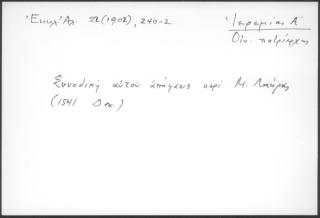 Ἐκκλ.Ἀλ. 22 (1902), 240-2
Ἱερεμίας Α΄
Οἰκ. πατριάρχης
Συνοδική αὐτοῦ ἀπόφασις περί Μ.
(1541 Δεκ.)